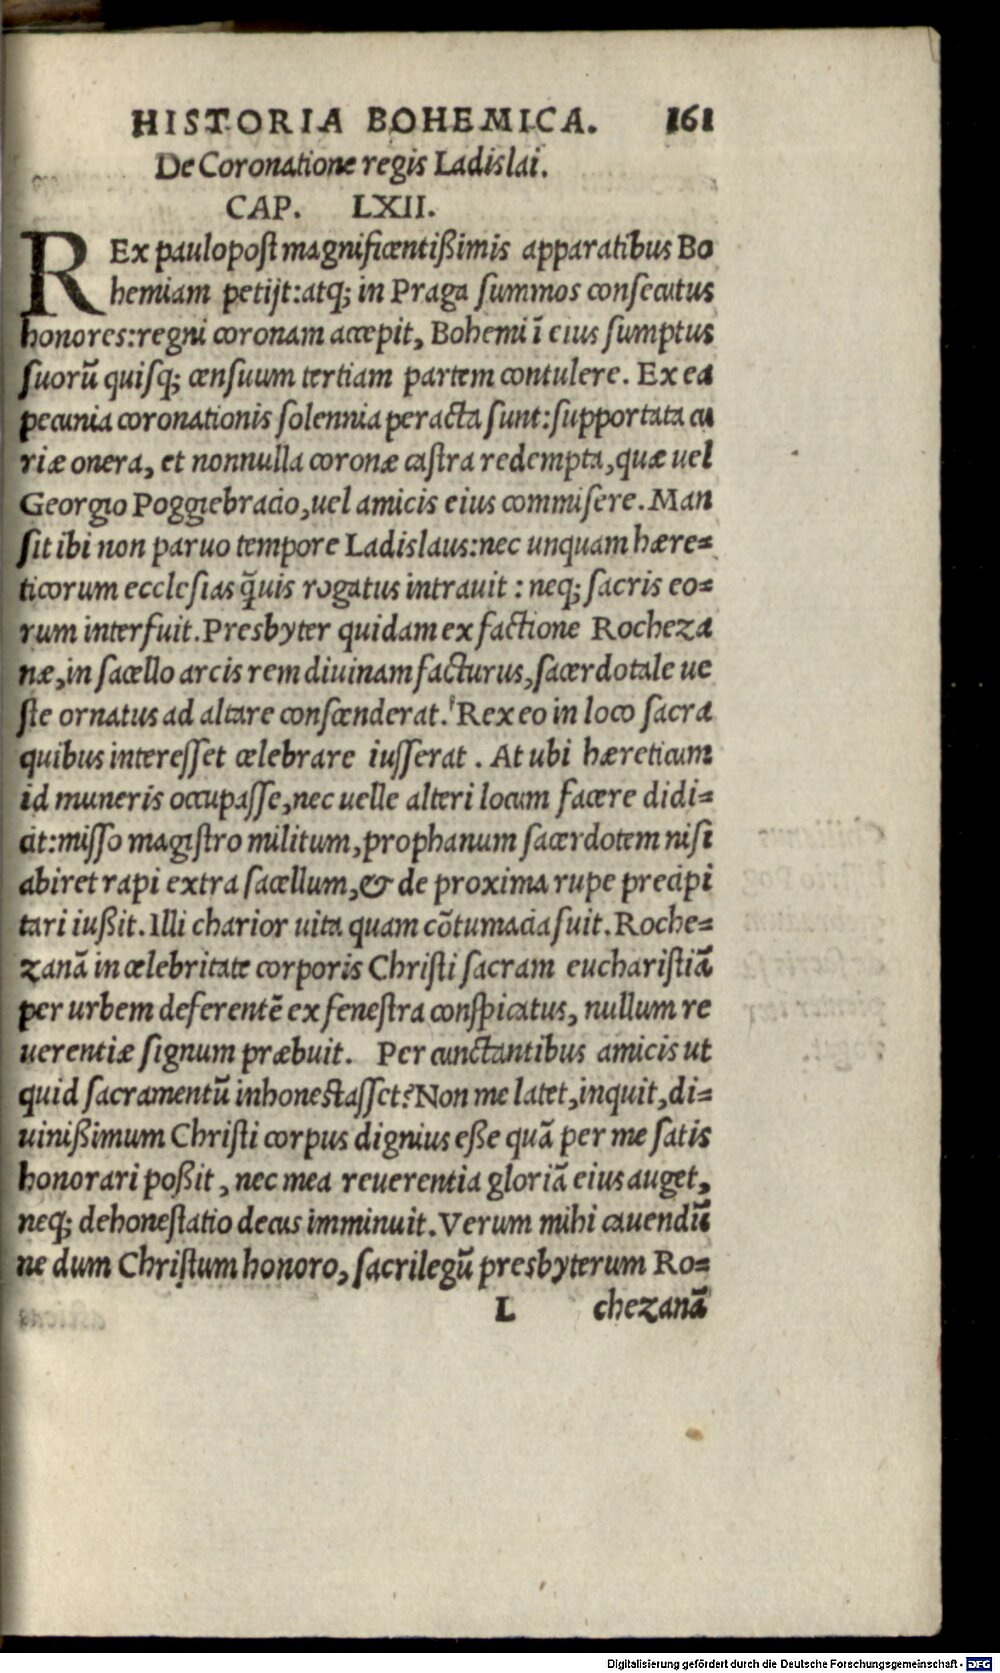 HISTORIA BOHEMICA. 161
De Coronatione regis Ladislai.
CAP. LXII.
REx paulopost magnificentißimis apparatibus Bo
hemiam petijt: atq; in Praga summos consecutus
honores: regni coronam accepit, Bohemi ĩ eius sumptus
suorũ quisq; censuum tertiam partem contulere. Ex ea
pecunia coronationis solennia peracta sunt: supportata cu
riæ onera, et nonnulla coronæ castra redempta, quæ uel
Georgio Poggiebracio, uel amicis eius commisere. Man
sit ibi non paruo tempore Ladislaus: nec unquam hære=
ticorum ecclesias q̃uis rogatus intrauit: neq; sacris eo=
rum interfuit. Presbyter quidam ex factione Rocheza
næ, in sacello arcis rem diuinam facturus, sacerdotale ue
ste ornatus ad altare conscenderat. Rex eo in loco sacra
quibus interesset celebrare iusserat. At ubi hæreticum
id muneris occupasse, nec uelle alteri locum facere didi=
cit: misso magistro militum, prophanum sacerdotem nisi
abiret rapi extra sacellum, & de proxima rupe precipi
tari iußit. Illi charior uita quam cõtumacia fuit. Roche=
zanã in celebritate corporis Christi sacram eucharistiã
per urbem deferentẽ ex fenestra conspicatus, nullum re
uerentiæ signum præbuit. Per cunctantibus amicis ut
quid sacramentũ inhonestasset? Non me latet, inquit, di=
uinißimum Christi corpus dignius eße quã per me satis
honorari poßit, nec mea reuerentia gloriã eius auget,
neq; dehonestatio decus imminuit. Verum mihi cauendũ
ne dum Christum honoro, sacrilegũ presbyterum Ro=
L chezanã
Digitalisierung gefördert durch die Deutsche Forschungsgemeinschaft - DFG